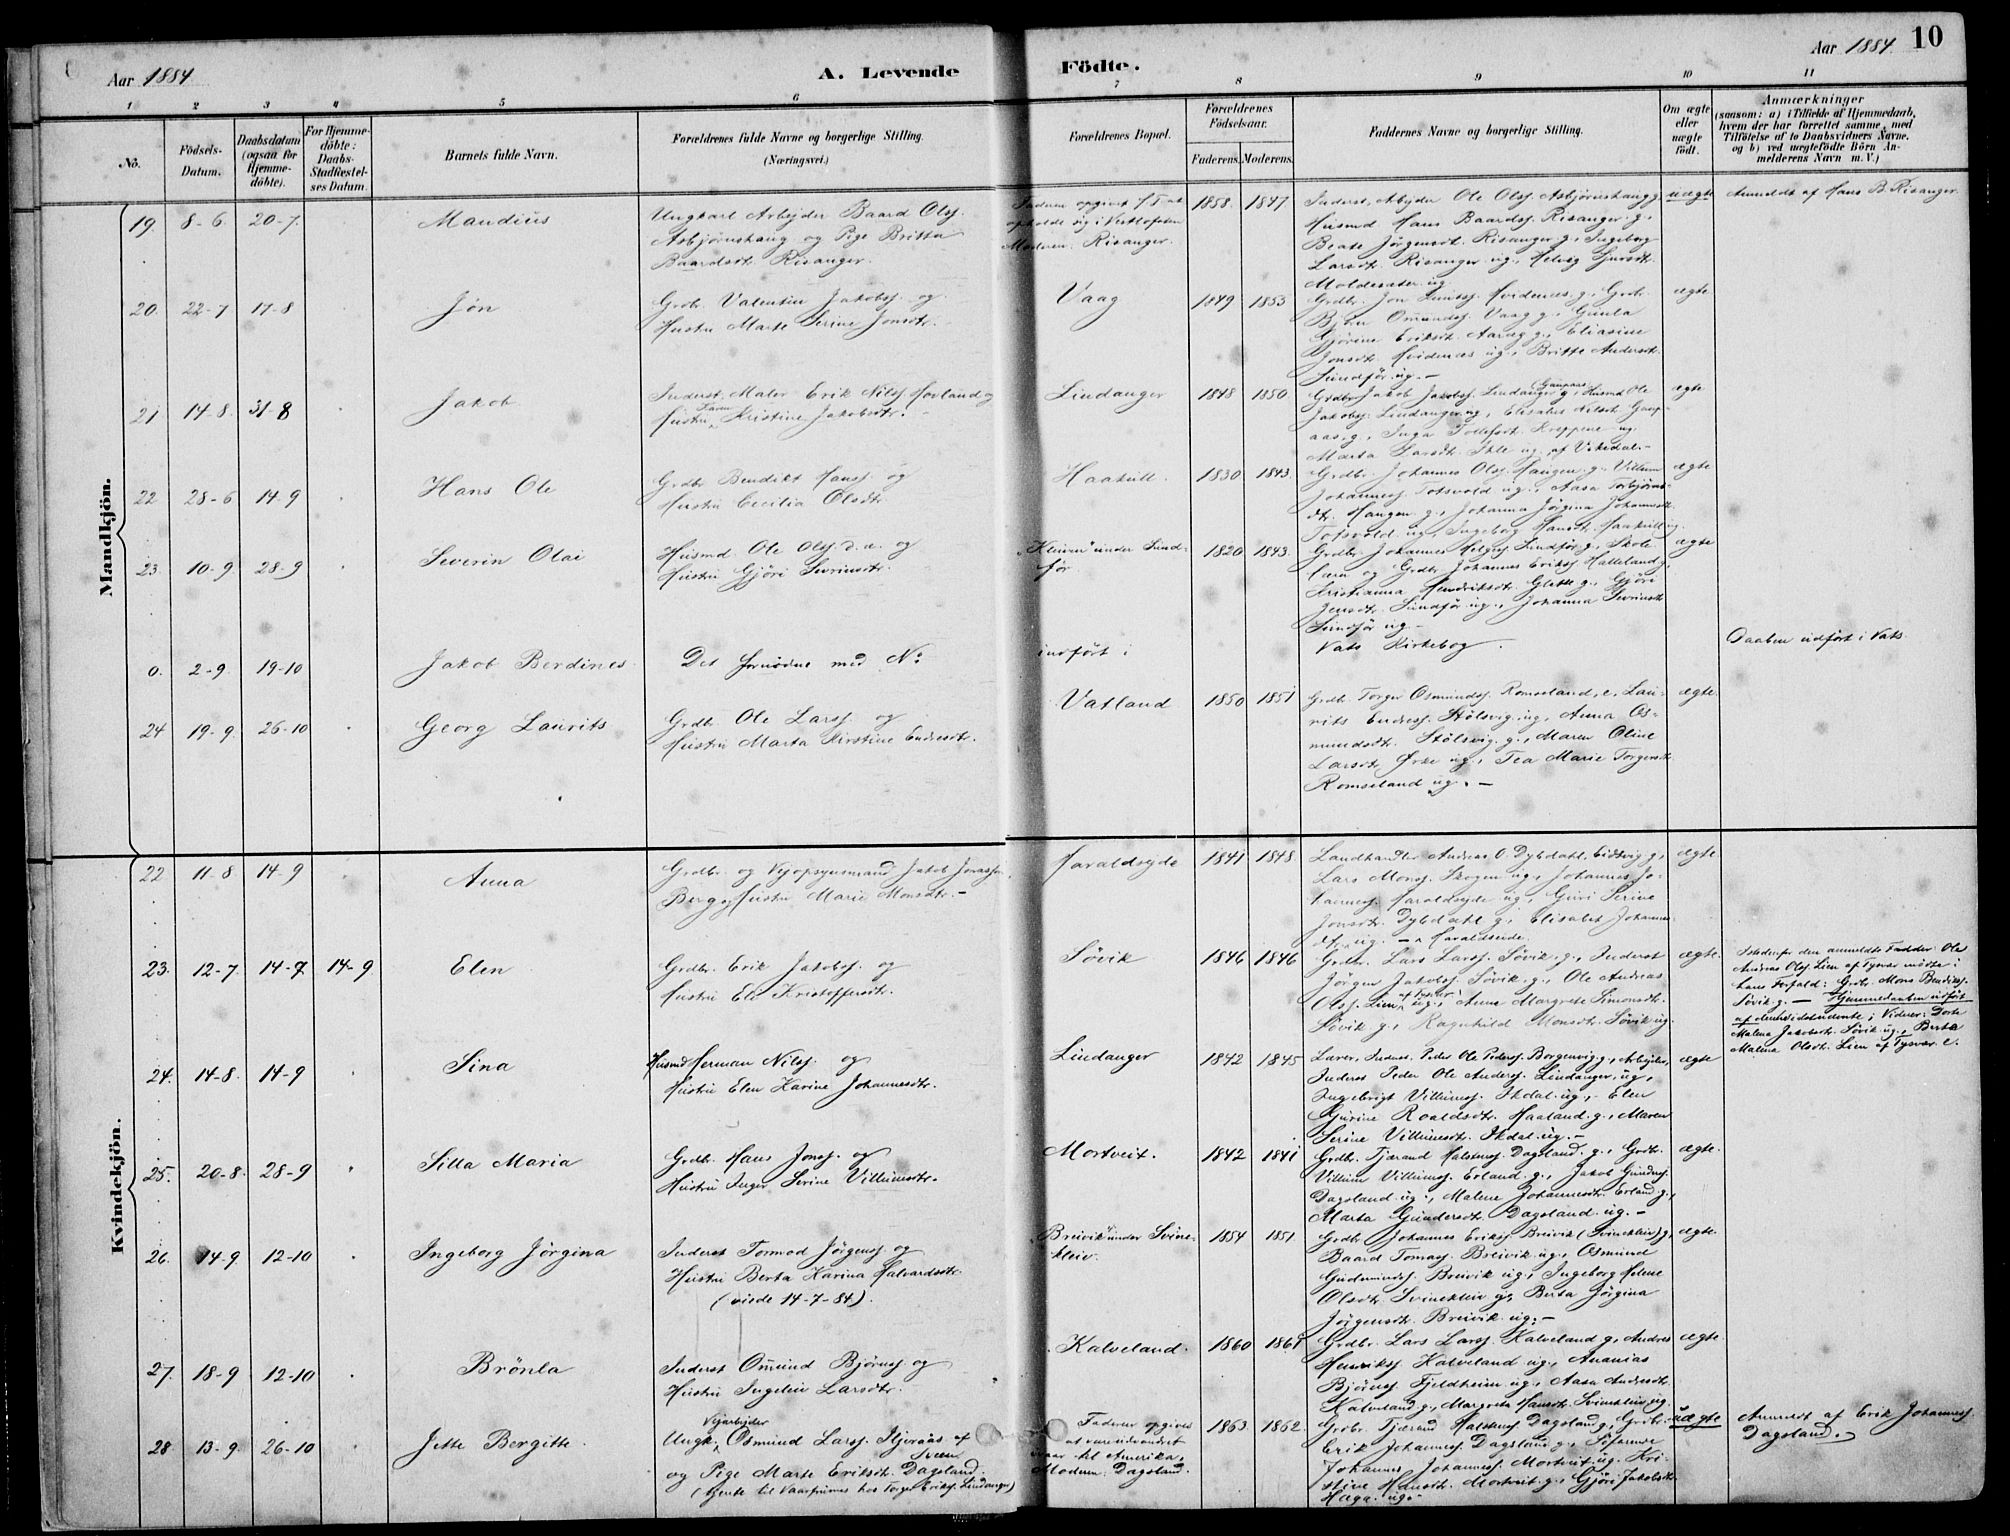 Aar 1884
A. Levende Födte.
Aar 1884. 10
1 2 3 4 5 6 7 8 9 10 11
No.
Födsels-Datum.
Daabsdatum (ogsaa for Hjemmedöbte).
For Hjemmedöbte: Daabs-Stadfæstelses Datum.
Barnets fulde Navn.
Forældrenes fulde Navne og borgerlige Stilling. (Næringsvei.)
Forældrenes Bopæl.
Forældrenes Födselsaar.
Faderens. Moderens.
Faddernes Navne og borgerlige Stilling.
Om ægte eller uægte födt.
Anmærkninger
(saasom: a) i Tilfælde af Hjemmedaab, hvem der har forrettet samme, med Tilföielse af to Daabsvidners Navne. og b) ved uægtefödte Börn Anmelderens Navn m. V.)
Mandkjön.
19. 8-6. 20-7. Mandius
Ungkarl Arbejder Baard Olsj.
Asbjørnshaug og Pige Britta
Baardsdt. Risanger.
Moderen: Risanger.
1858. 1847
Inderst, Arbejder Ole Olsj. Asbjørnshaug g.,
Husmd Hans Baardsj. Risanger g.,
Beate Jörgensdt. Risanger g., Ingeborg
Larsdt. Risanger ug.,
uægte
Anmeldt af Hans B. Risanger.
20. 22-7 17-8 Jon
Grdbr. Valentin Jakobsj. og
Hustru Marte Serine Jonsdtr.
Vaag
1849 1853
Björn Osmundsj. Vaag g., Gunla
Gjörine Eriksdt. Aarag g., Eliasine
Jonsdt. Hvidenes ug., Britte Andersdt.
Sundför ug. -
ægte
21 14-8. 31-8 Jakob
Inderst, Maler Erik Nilsj. Hovland og
Hustru Karen Kristine Jakobsdtr. -
Lindanger
1848 1850.
Grdbr. Jakob Jakobsj. Lindanger g., Husmd Ole
Jakobsj. Lindanger ug., Elisabet Nilsdt. Gaup-
aas g., Inga Tollefsdt. Kreppene ug.
Marta Larsdt. Ihle ug. af Vikedal. -
ægte
22 28-6 14-9 Hans Ole
Grdbr Bendikt Hansj. og
Hustru Cecilia Olsdtr.
Haakull.
1830 1843.
Grdbr. Johannes Olsj. Haugen g., Villum
Johannesj. Totsvold ug., Aasa Torbjörns-
dt. Haugen g., Johanna Jörgina Johannesdt.
Totsvold ug., Ingeborg Hansdt. Haakull ug.
ægte
23. 10-9. 28-9 Severin Olai
Husmd Ole Olsj. d. æ. og
Hustru Gjöri Sevrinsdtr.
"Kleiven" under Sund-
för.
1820 1843.
Grdbr. Johannes Helgesj. Sundför g., Skole
lærer og Grdbr. Johannes Eriksj. Halleland g.,
Kristianna Hendriksdt. Glette g., Gjöri
Jensdt. Sundför ug., Johanna Sevrinsdt
Sundför ug. -
ægte
0. 2-9. 19-10 Jakob Berdines
Det fornödne med No indfört i Vats Kirkebog.
Daaben udfört i Vats.
24 19-9. 26-10 Georg Laurits
Grdbr Ole Larsj. og
Hustru Marta Kirstine Endresdtr.
Vatland
1850 1851
Grdbr. Torger Osmundsj. Romseland, e., Lau-
rits Endresj. Stölsvig ug., Anna Os-
mundsdt. Stölsvig g., Maren Oline
Larsdt. Örke ug., Tea Marie Torgersdt.
Romseland ug. -
ægte
Kvindekjön.
22 11-8 14-9 Anna
Grdbr. og Vejopsynsmand Jakob Jonassjn.
Berg og Hustru Marie Monsdtr. -
Haraldsejde
1841 1848.
Landhandler Andreas O. Dybdahl, Eidsvig g.,
Lars Monsj. Skogen ug., Johannes Jo-
hannesj. Haraldsejde ug., Guri Serine
Jonsdt. Dybdahl g., Elisabet Johannes
dt. ug. - Haraldseide.
ægte
23. 12-7. 14-7 14-9 Elen
Grdbr. Erik Jakobsj. og
Hustru Eli Kristoffersdtr.
Sövik
1846 1846
Grdbr. Lars Larsj. Sövik g., Inderst
Jörgen Jakobsj. Sövik g., Ole Andreas
Olsj. Lien af Tysvær ug., Anne Margrete Simonsdt.
Sövik g., Ragnhild Monsdt. Sövik ug.
ægte.
Istedenfor den anmeldte Fadder Ole
Andreas Olsj. Lien af Tysvær mödte i
hans Forfald: Grdbr. Mons Bendiksj.
Sövik g. - Hjemmedaaben udfört
af Vidner: Dorte
Malena Jakobsdt. Sövik ug., Berta
Malena Olsdt. Lien af Tysvær e.
24. 14-8. 14-9 Sina
Husmd Herman Nilsj. og
Hustru Elen Karine Johannesdtr.
Lindanger
1842 1845
Lærer, Inderst, Peder Ole Pedersj. Borgenvig g., Arbejder,
Inderst Peder Ole Andersj. Lindanger, ug.,
Ingebrigt Villumsj. Ihdal ug., Elen
Gurine Roaldsdt. Haaland g., Maren
Serine Villumsdt. Ihdal ug. -
ægte
25. 20-8. 28-9 Silla Maria
Grdbr. Hans Jonsj. og
Hustru Inger Serine Villumsdtr.
Mortveit.
1842 1841
Grdbr. Tjærand Halstensj. Dagsland g., Grdbr.
Villum Villumsj. Erland g., Jakob Gundersj.
Dagsland ug., Malene Johannesdt. Erland g.,
Marta Gundersdt. Dagsland ug. -
ægte.
26. 14-9 12-10 Ingeborg Jörgina
Inderst Tormod Jörgensj og
Hustru Berta Karina Halvardsdtr.
(viede 14-7-84).
"Breivik" under Svine-
kleiv.
1854 1851
Grdbr Johannes Eriksj. Breivik (Svinekleiv) g.,
Baard Tomasj. Breivik ug., Osmund
Gudmundsj. Breivik ug., Ingeborg Helene
Olsdt. Svinekleiv g., Berta Jörgina
Jörgensdt. Breivik ug. -
ægte.
27. 18-9 12-10 Brönla
Inderst Osmund Björnsj. og
Hustru Ingeleiv Larsdtr.
Kalveland.
1860 1861
Grdbr. Lars Larsj. Kalveland g., Andres
Henriksj. Kalveland ug., Ananias
Björnsj. Fjeldheim ug., Aasa Andresdt.
Kalveland g., Margreta Hansdt. Svinekleiv ug.
ægte.
28 13-9. 26-10 Jette Bergitte
Vejarbejder
Ungk. Osmund Larsj. af
og Pige Marte Eriksdt. Dagsland.
(tjente til Vaarfrimes hos Torger Eriksj. Lindanger)
Faderen opgives
at være udvandret
til Amerika,
Moderen: Dagsland.
1863. 1862.
Grdbr. Tjærand Halstensj. Dagsland g., Grdbr.
Erik Johannesj. Dagsland g.,
Johannes Johannesj. Mortveit ug. Kri-
stine Hansdt. Mortveit g., Gjöri Jakobsdt.
Haga ug. -
uægte
Anmeldt af Erik Johannesj.
Dagsland.